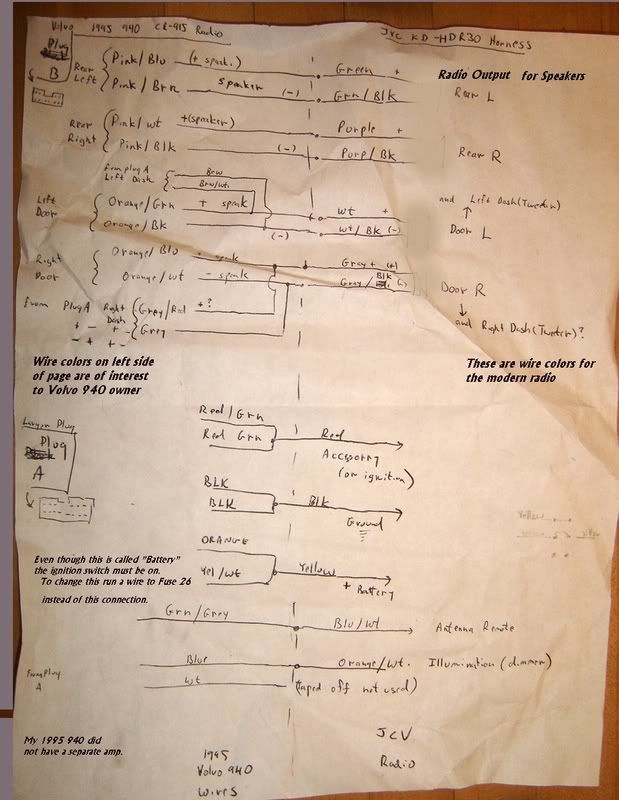 Volvo 1995 940 CR-915 Radio
JVC KD-HDR30 Harness
Plug
B
Rear Left
Pink/Blu (+ speak.)
Green +
Radio Output for Speakers
Pink/Brn speaker (-)
Grn/Blk
Rear L
Rear Right
Pink/wt +(speaker)
Purple +
Pink/Blk (-)
Purp/Bk
Rear R
from plug A
Left Dash
Brw
Brw/wti
Left Door
Orange/Grn + speak
wt +
and Left Dash (Tweeter)
Orange/Bk (-)
wt/Bk (-)
Door L
Right Door
Orange/Blu + speak
Gray + (+)
Orange/wt - speak
Gray/Blk (-)
Door R
From Plug A Right Dash
Grey/Red +?
+ - + -
Grey
- + + -
and Right Dash (Tweeter)?
Wire colors on left side
of page are of interest
to Volvo 940 owner
These are wire colors for
the modern radio
Larger Plug
Plug
A
Red/Grn
Red Grn
Red
Accessory
(or ignition)
BLK
BLK
Blk
Ground
Yellow
Even though this is called "Battery"
the ignition switch must be on.
To change this run a wire to Fuse 26
instead of this connection.
ORANGE
Yel/wt
Yellow
+ Battery
Grn/Grey
Blu/wt
Antenna Remote
From Plug A
Blue
Orange/wt.
Illumination (dimmer)
wt
(taped off not used)
My 1995 940 did
not have a separate amp.
1995
Volvo 940
wires
JCV
Radio